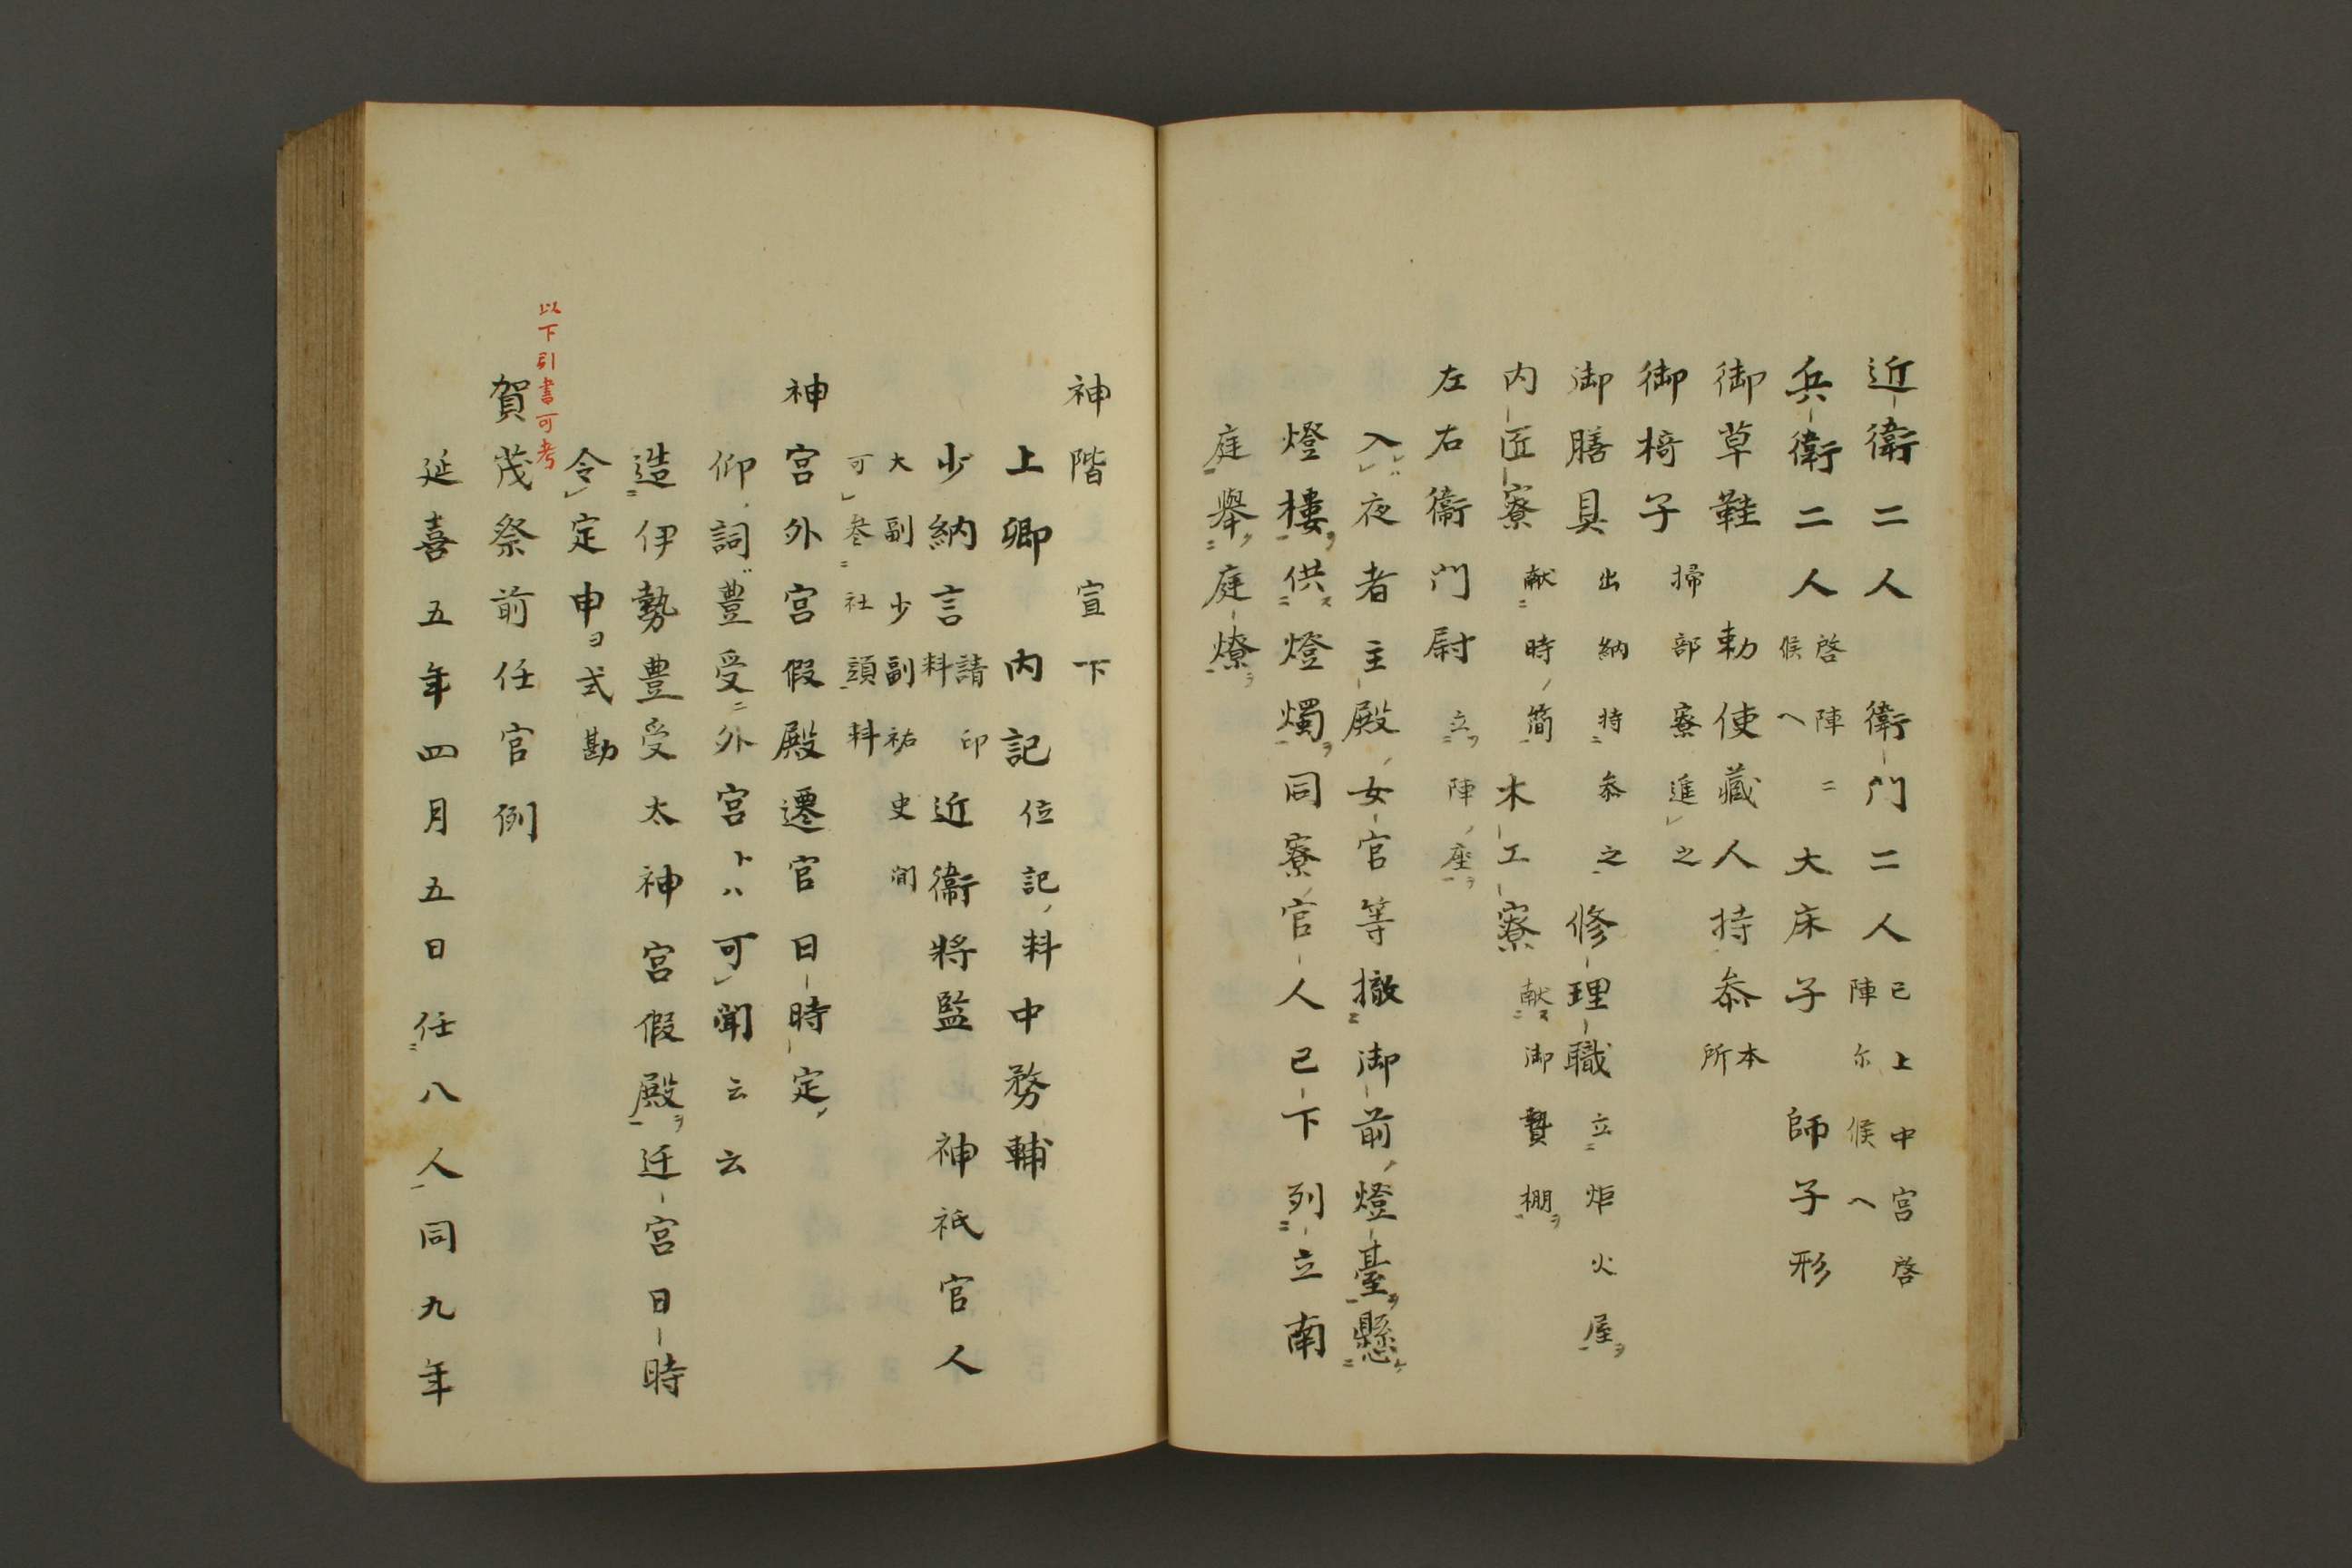 近衛二人 衛門二人 已上中宮啓
陣尓候へ
兵衛二人 啓陣ニ
候へ 大床子 師子形
御草鞋 勅使蔵人持参 本
所
御椅子 掃部寮進之
御膳具 出納持参之 修理職 立炬火屋ヲ
内匠寮 献時簡 木工寮 献御贄棚ヲ
左右衛門尉 立陣座ヲ
入夜者主殿女官等撤御前燈臺ヲ懸
燈樓ヲ供燈燭ヲ同寮官人已下列立南
庭挙庭燎ヲ
神階宣下
上卿 内記 位記料 中務輔
少納言 請印
料 近衛将監 神祇官人
大副少副祐史間
可参社頭料
神宮外宮假殿遷宮日時定
仰詞豊受ニ外宮トハ可聞云云
造伊勢豊受太神宮假殿ヲ迁宮日時
令定申ヨ 弍勘
以下引書可考
賀茂祭前任官例
延喜五年四月五日任八人同九年